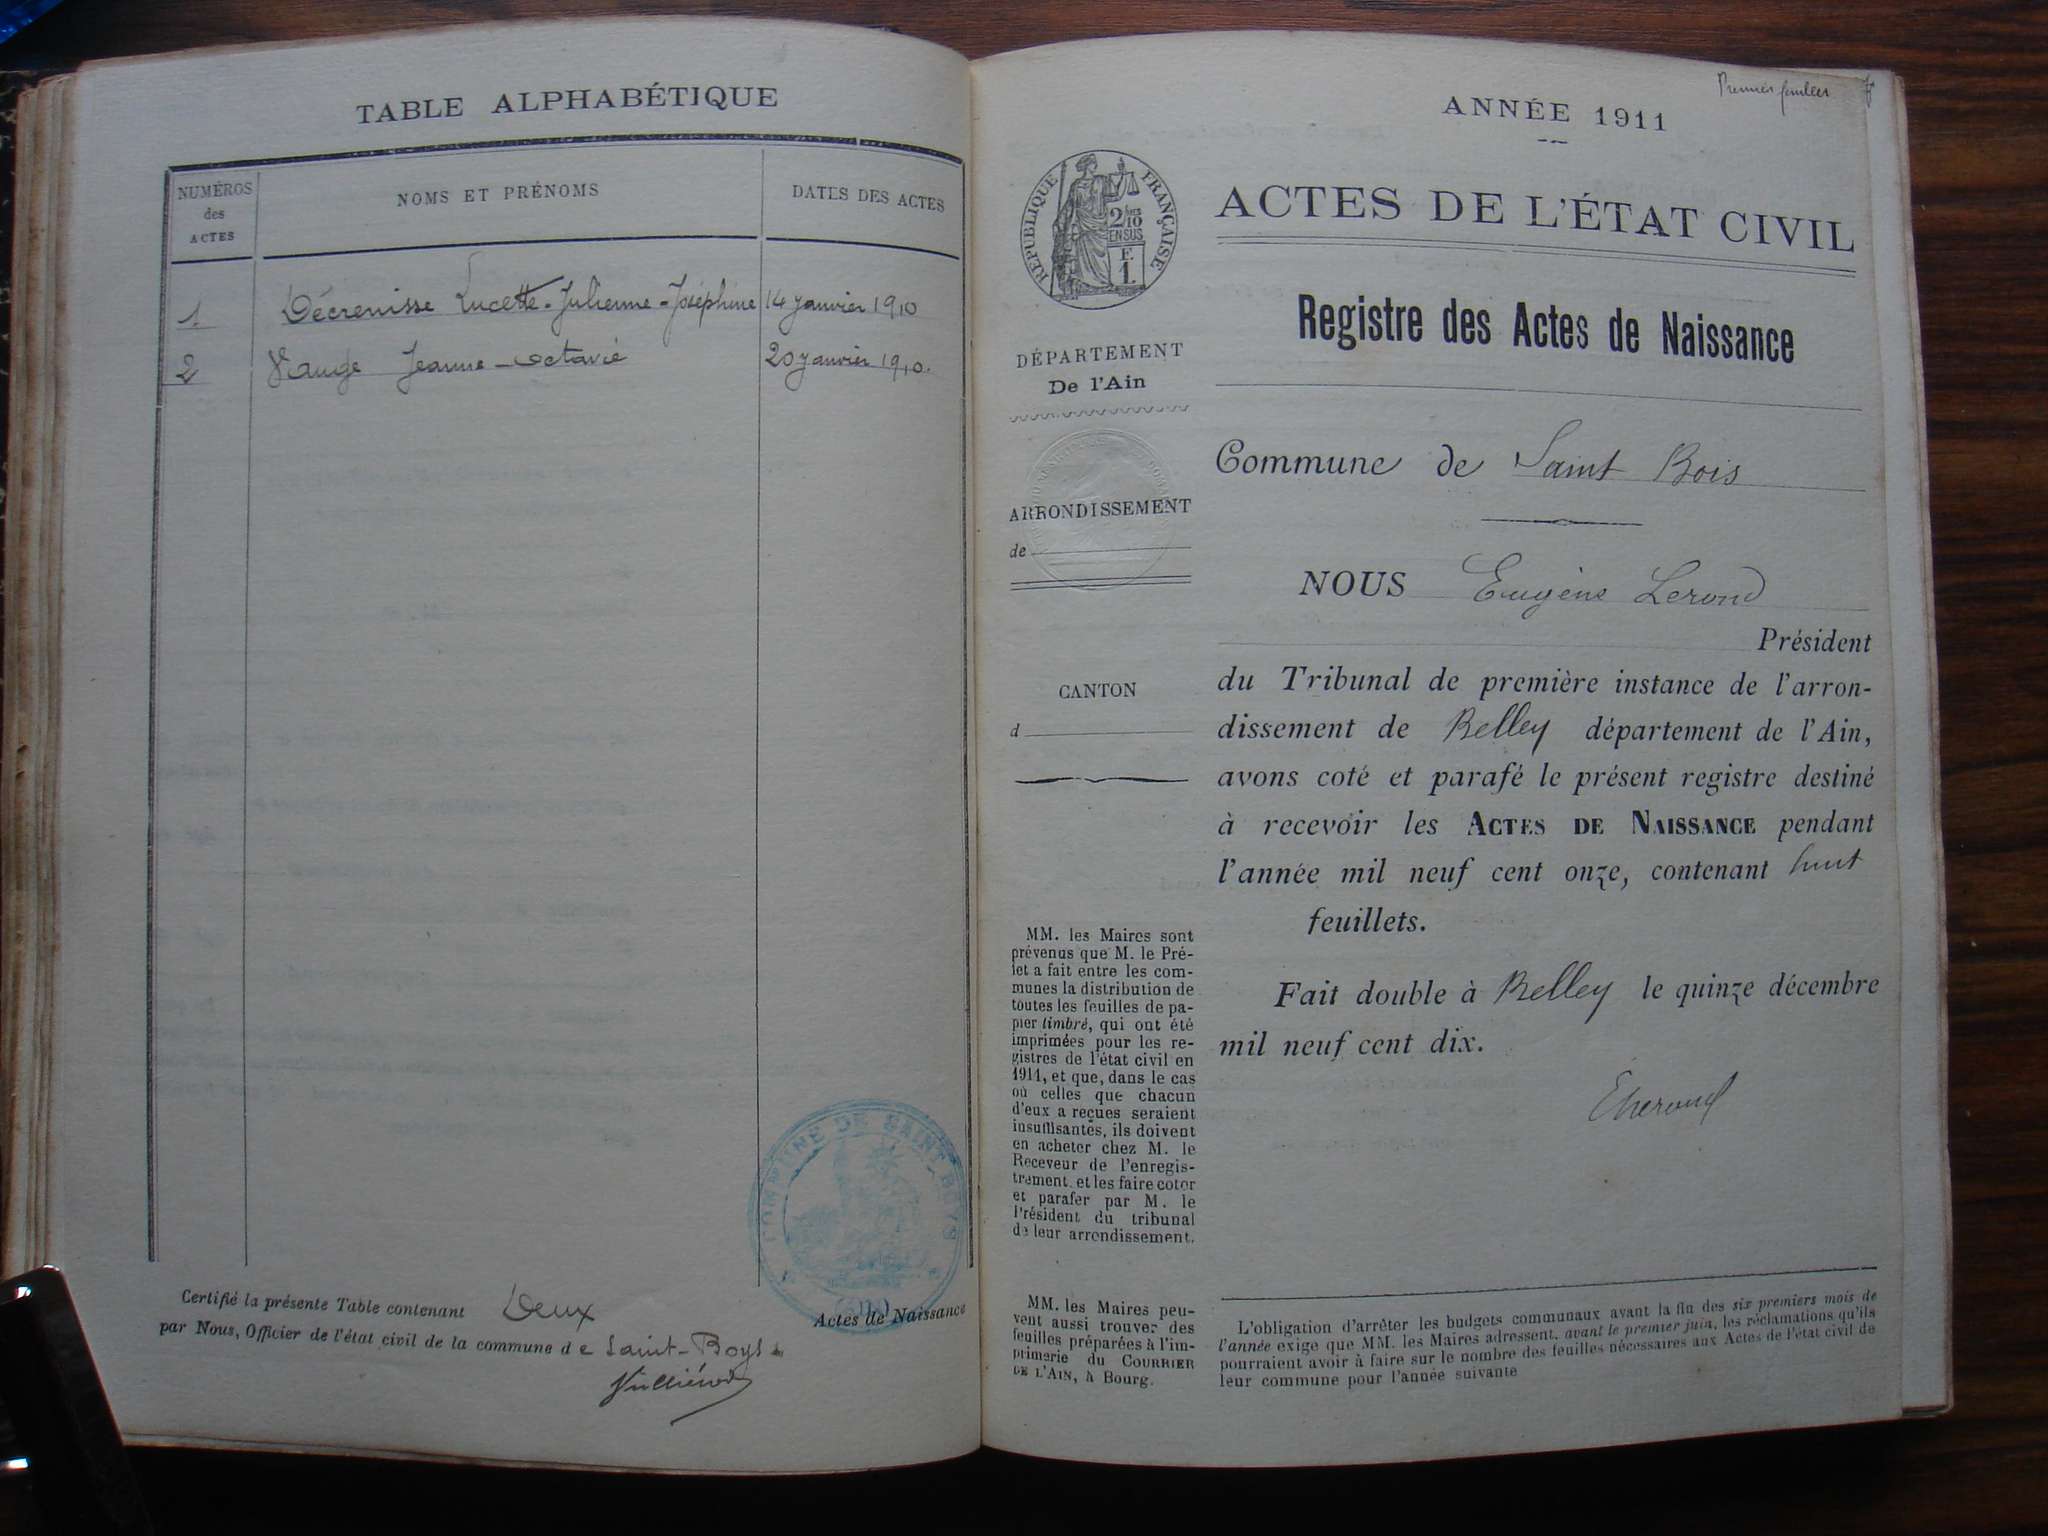 TABLE ALPHABÉTIQUE
NUMÉROS
des
ACTES
NOMS ET PRÉNOMS
DATES DES ACTES
1. Décrenisse Lucette-Julienne-Joséphine 14 janvier 1910
2 Vauge Jeanne-Octavie 20 janvier 1910.
COMMUNE DE SAINT-BOYS
Certifié la présente Table contenant Deux Actes de Naissance
par Nous, Officier de l'état civil de la commune de Saint-Boys
Premier feuillet
ANNÉE 1911
RÉPUBLIQUE FRANÇAISE
2/10
EN SUS
E
1.
ACTES DE L'ÉTAT CIVIL
Registre des Actes de Naissance
DÉPARTEMENT
De l'Ain
ARRONDISSEMENT
de
CANTON
d
Commune de Saint Bois
NOUS Eugène Lerond
Président
du Tribunal de première instance de l'arron-
dissement de Belley département de l'Ain,
avons coté et parafé le présent registre destiné
à recevoir les ACTES DE NAISSANCE pendant
l'année mil neuf cent onze, contenant huit
feuillets.
Fait double à Belley le quinze décembre
mil neuf cent dix.
MM. les Maires sont
prévenus que M. le Pré-
fet a fait entre les com-
munes la distribution de
toutes les feuilles de pa-
pier timbré, qui ont été
imprimées pour les re-
gistres de l'état civil en
1911, et que, dans le cas
où celles que chacun
d'eux a reçues seraient
insuffisantes, ils doivent
en acheter chez M. le
Receveur de l'enregis-
trement. et les faire coter
et parafer par M. le
Président du tribunal
de leur arrondissement.
MM. les Maires peu-
vent aussi trouver des
feuilles préparées à l'im-
primerie du COURRIER
DE L'AIN, à Bourg.
L'obligation d'arrêter les budgets communaux avant la fin des six premiers mois de
l'année exige que MM. les Maires adressent, avant le premier juin, les réclamations qu'ils
pourraient avoir à faire sur le nombre des feuilles nécessaires aux Actes de l'état civil de
leur commune pour l'année suivante